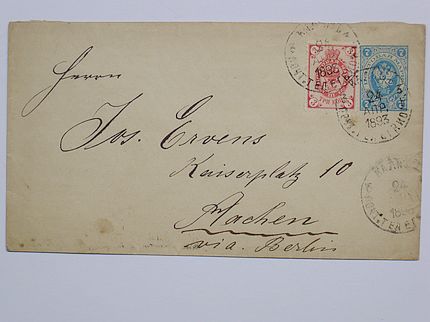 Herrn
Jos. Ervens
Kaiserplatz 10
Aachen
via. Berlin
24
1893
7
7
24
АПР.
1893
24